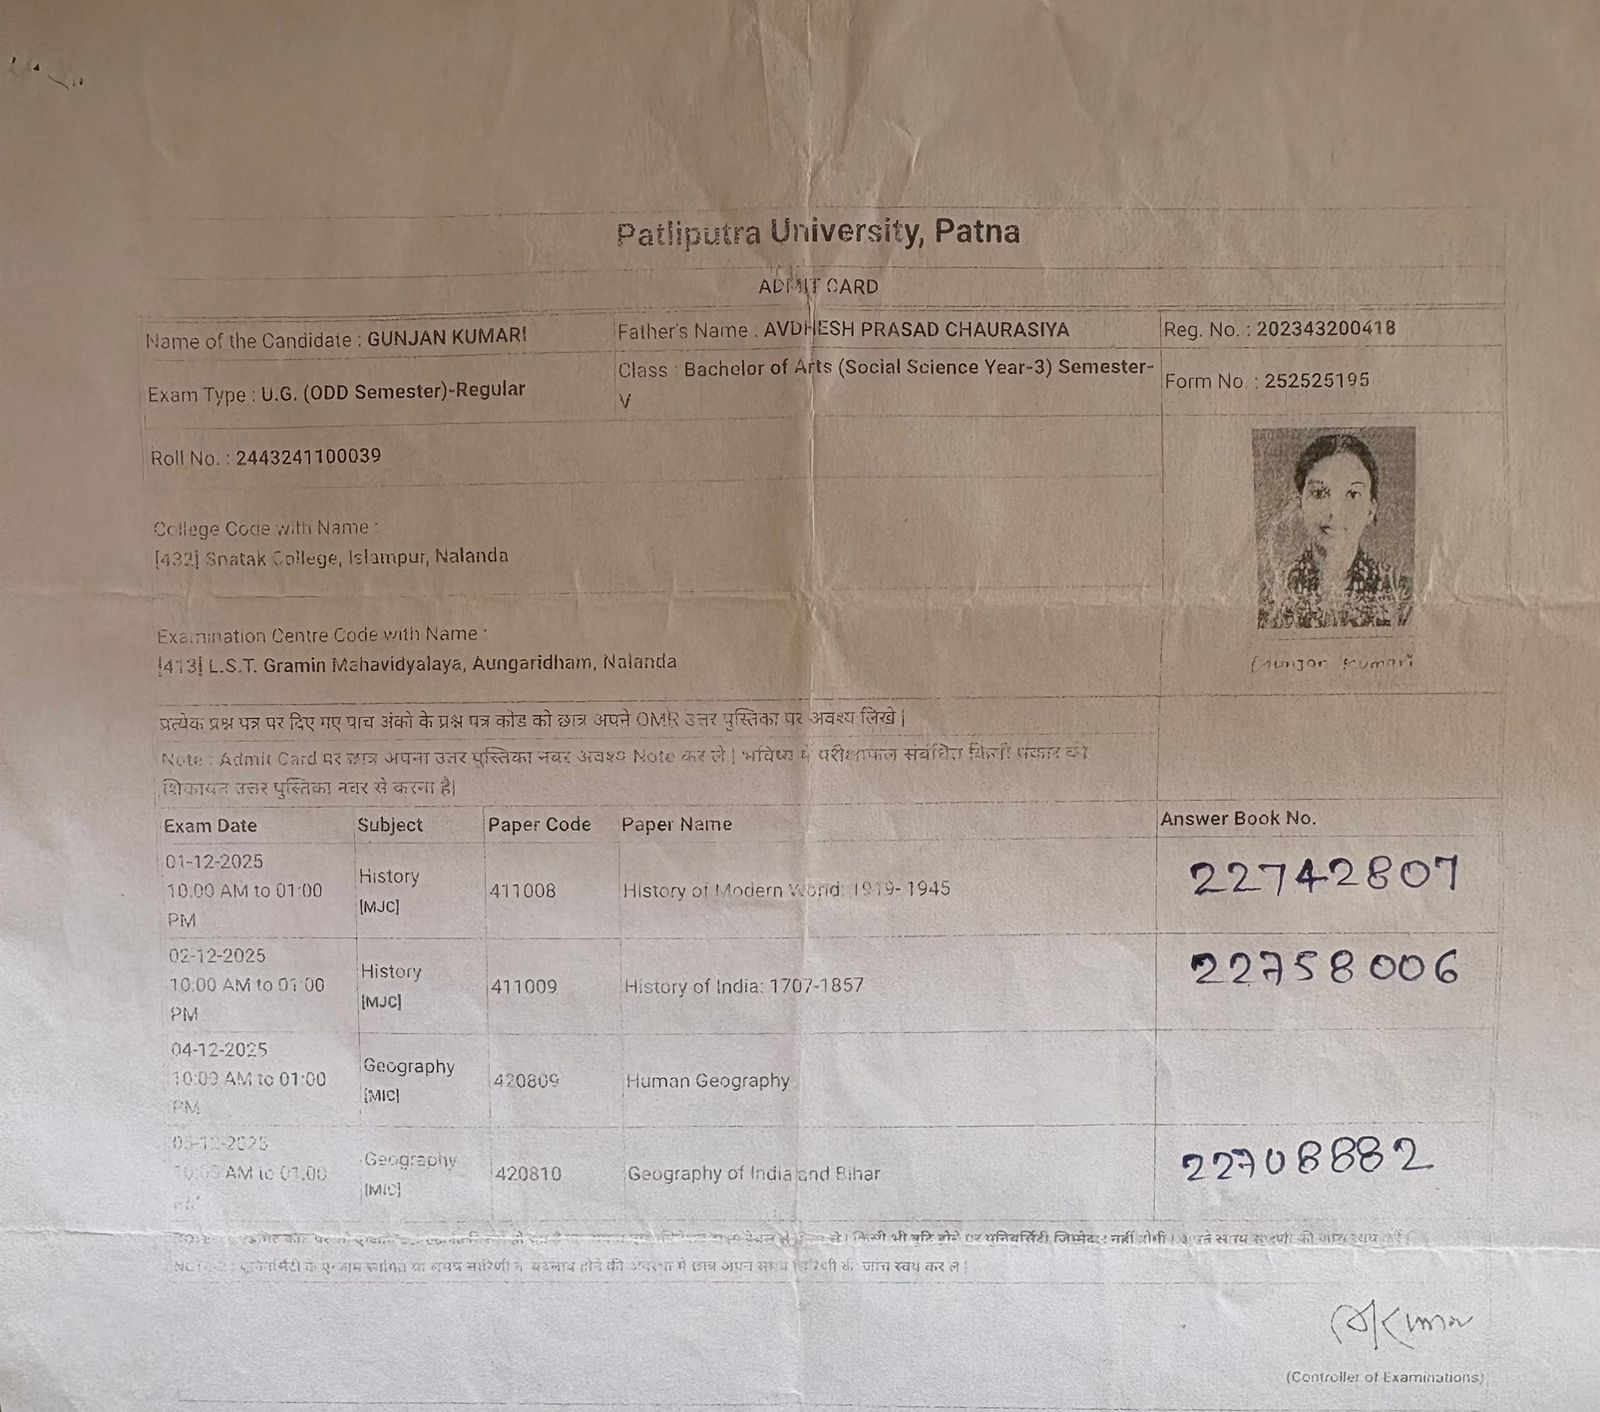 Patliputra University, Patna
ADMIT CARD
Name of the Candidate : GUNJAN KUMARI
Father's Name : AVDHESH PRASAD CHAURASIYA
Reg. No. : 202343200418
Exam Type : U.G. (ODD Semester)-Regular
Class : Bachelor of Arts (Social Science Year-3) Semester-
V
Form No. : 252525195
Roll No. : 2443241100039
College Code with Name :
[432] Snatak College, Islampur, Nalanda
Examination Centre Code with Name :
[413] L.S.T. Gramin Mahavidyalaya, Aungaridham, Nalanda
Gunjan Kumari
प्रत्येक प्रश्न पत्र पर दिए गए पाच अंको के प्रश्न पत्र कोड को छात्र अपने OMR उत्तर पुस्तिका पर अवश्य लिखे |
Note : Admit Card पर छात्र अपना उत्तर पुस्तिका नंबर अवश्य Note कर ले | भविष्य में परीक्षाफल संबंधित किसी प्रकार की
शिकायत उत्तर पुस्तिका नंबर से करना है|
Exam Date Subject Paper Code Paper Name Answer Book No.
01-12-2025
10.00 AM to 01:00
PM
History
[MJC]
411008
History of Modern World: 1919-1945
22742807
02-12-2025
10:00 AM to 01:00
PM
History
[MJC]
411009
History of India: 1707-1857
22758006
04-12-2025
10:00 AM to 01:00
PM
Geography
[MIC]
420809
Human Geography
05-12-2025
AM to 01.00
Geography
[MIC]
420810
Geography of India and Bihar
22708882
किसी भी त्रुटि होने पर यूनिवर्सिटी जिम्मेदार नहीं होगी |
छात्र अपने समय जाँच स्वयं कर ले |
(Controller of Examinations)